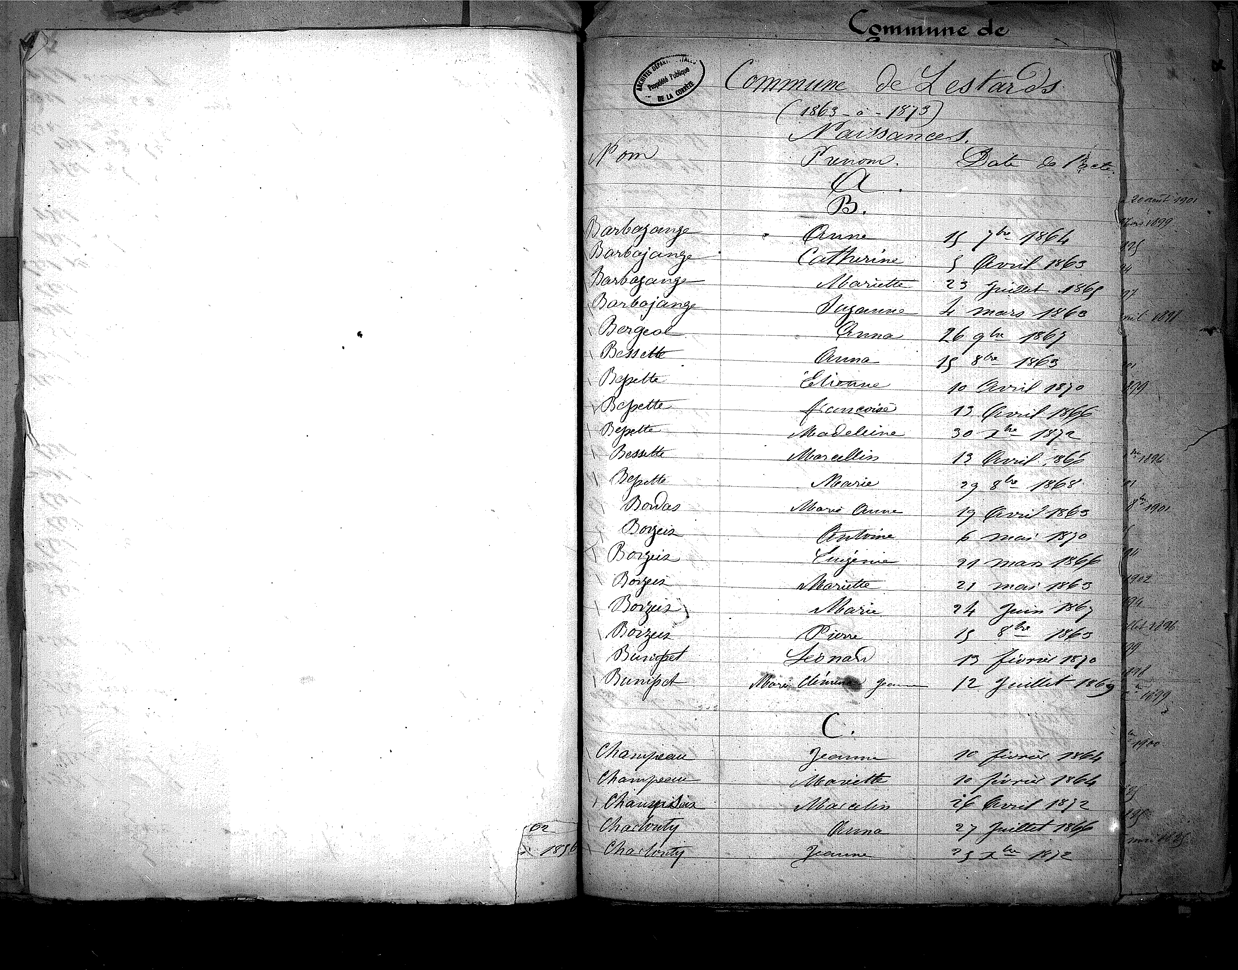 Commune de
ARCHIVES DÉPARTEMENTALES
Propriété Publique
DE LA CORRÈZE
Commune de Lestards
(1863 - à - 1873)
Naissances.
Nom Prénom. Date de l'acte.
A.
B.
Barbazange Anne 15 7bre 1864
Barbazange Catherine 5 Avril 1863
Barbazange Mariette 23 Juillet 1865
Barbazange Suzanne 4 mars 1863
Bergeal Anna 26 9bre 1867
Bessette Anna 15 8bre 1863
Bessette Etienne 10 Avril 1870
Bessette françoise 13 Avril 1866
Bessette Madeleine 30 Xbre 1872
Bessette Marcellin 13 Avril 1866
Bessette Marie 29 8bre 1868
Bordas Marie Anne 19 Avril 1863
Borzeix Antoine 6 mai 1870
Borzeix Eugénie 21 mars 1866
Borzeix Mariette 21 mai 1863
Borzeix Marie 24 Juin 1867
Borzeix Pierre 15 8bre 1863
Bunisset Léonard 13 février 1870
Bunisset Marie Clémence Jeanne 12 Juillet 1869
C.
Champeau Jeanne 10 février 1864
Champeau Mariette 10 février 1864
Marcelin 26 Avril 1872
Charlouty Anna 27 Juillet 1866
Charlouty Jeanne 25 Xbre 1872